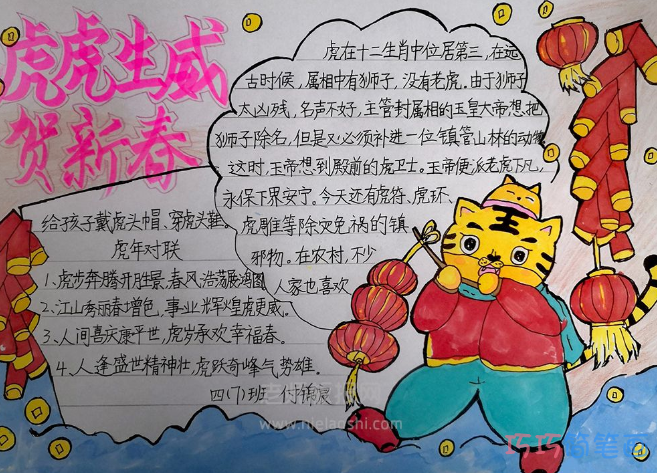 虎虎生威
贺新春
虎在十二生肖中位居第三,在远
古时候,属相中有狮子,没有老虎。由于狮子
太凶残,名声不好,主管封属相的玉皇大帝想把
狮子除名,但是又必须补进一位镇管山林的动物
这时,玉帝想到殿前的虎卫士。玉帝便派老虎下凡,
永保下界安宁。今天还有虎符、虎环、
虎雕等除灾免祸的镇
邪物。在农村,不少
人家也喜欢
给孩子戴虎头帽、穿虎头鞋。
虎年对联
1、虎步奔腾开胜景,春风浩荡展鸿图
2、江山秀丽春增色,事业辉煌虎更威。
3、人间喜庆康平世,虎岁承欢幸福春。
4、人逢盛世精神壮,虎跃奇峰气势雄。
四(7)班 付锦
王